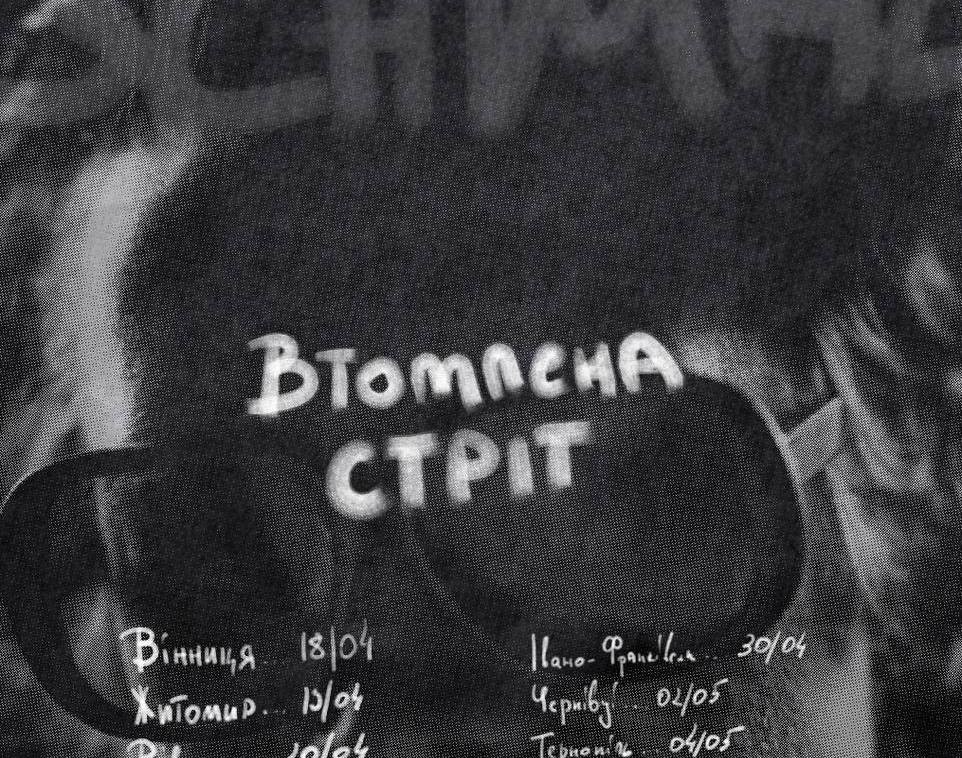 Втомлена
стріт
Вінниця... 18/04
Житомир... 19/04
20/04
Івано-Франківськ.. 30/04
Чернівці.. 02/05
Тернопіль.. 04/05